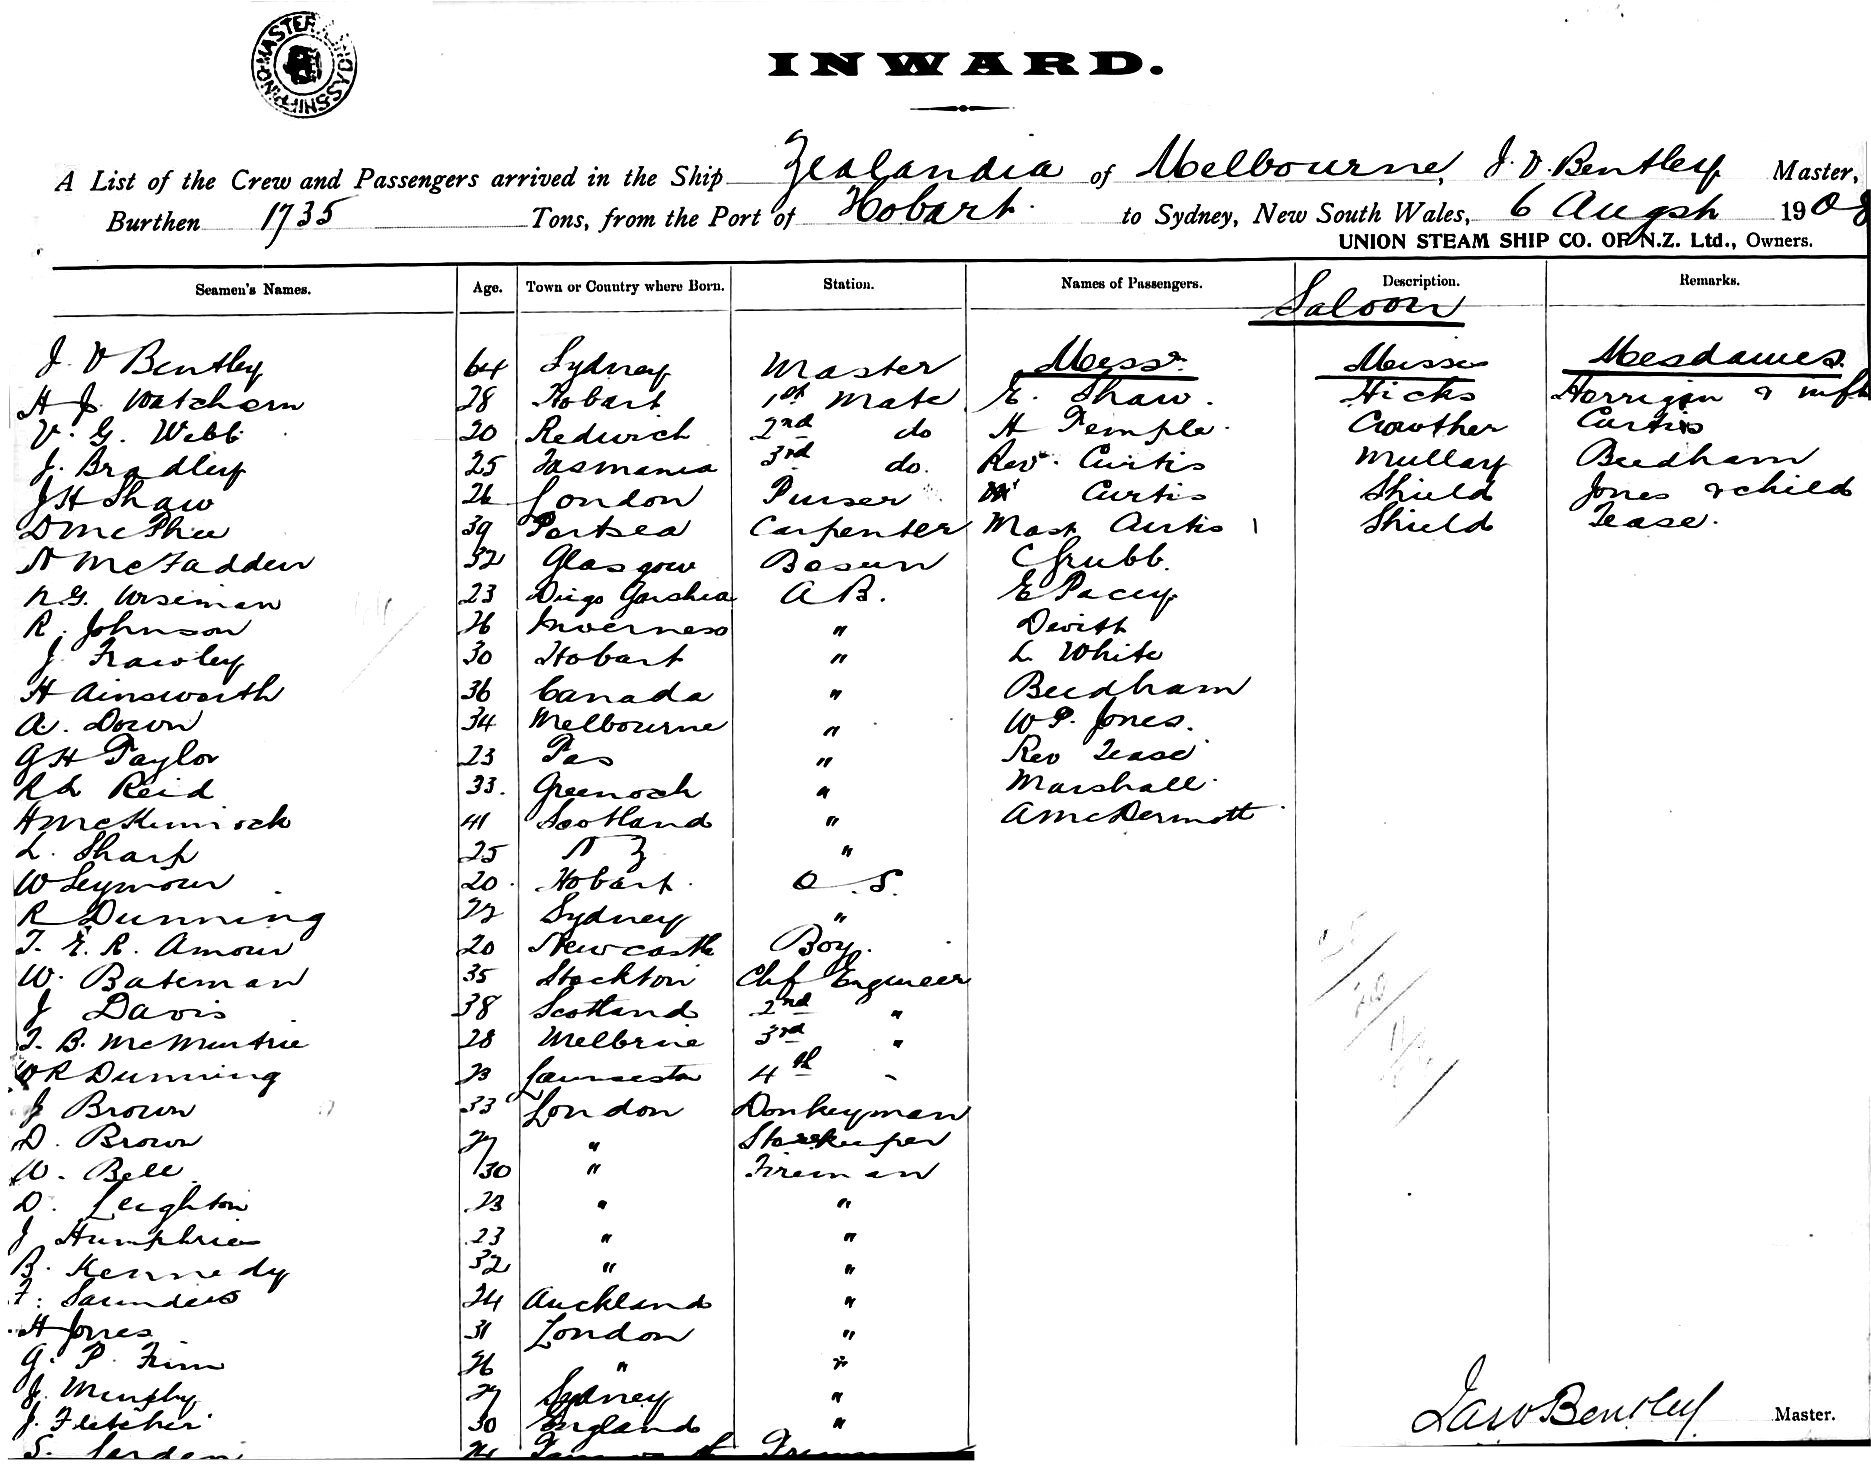 MASTER SHIPPING
INWARD.
A List of the Crew and Passengers arrived in the Ship Zealandia of Melbourne, J. V. Bentley Master,
Burthen 1735 Tons, from the Port of Hobart. to Sydney, New South Wales, 6 Augst 1908
UNION STEAM SHIP CO. OF N.Z. Ltd., Owners.
Seamen's Names. Age. Town or Country where Born. Station. Names of Passengers. Description. Remarks.
Saloon
J V Bentley 64 Sydney Master Messrs Misses Mesdames.
H J. Watchorn 28 Hobart 1st Mate E. Shaw. Hicks Horrigan & inft
V. G. Webb 20 Redwich 2nd do H Temple. Crowther Curtis
J. Bradley 25 Tasmania 3rd do. Rev. Curtis Mullay Beedham
J H Shaw 26 London Purser Curtis Shield Jones & child
D McPhee 39 Portsea Carpenter Mast Curtis 1 Shield Tease.
N McFadden 32 Glasgow Bosun C Grubb.
N.G. Wiseman 23 Diego Garshia A B. E Pacey
R. Johnson 26 Inverness " Devitt
J. Frawley 30 Hobart " L. White
H Ainsworth 36 Canada " Beedham
A. Down 34 Melbourne " W P. Jones.
G H Taylor 23 Tas " Rev Tease
Reid 33. Greenock " Marshall.
H 41 Scotland " A McDermott
L. Sharp 25 N Z "
W Seymour 20. Hobart. O. S.
R Dunning 22 Sydney "
T. E. R. Amour 20 Newcastle Boy.
W. Bateman 35 Stockton Chf Engineer
J Davis 38 Scotland 2nd "
T. B. McMurtrie 28 Melbrne 3rd "
W R Dunning 23 Launceston 4th "
J Brown 33 London Donkeyman
D. Brown 27 " Storekeeper
W. Bell 30 " Fireman
D. Leighton 23 " "
J Humphries 23 " "
B. Kennedy 32 " "
F. Saunders 24 Auckland "
H Jones 31 London "
G. P. Finn 26 " "
J. Murphy 27 Sydney "
J. Fletcher 30 England "
S. 24
Jas V Bentley Master.